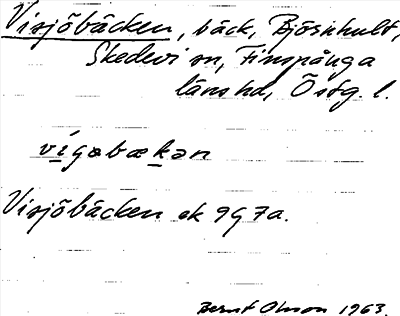 Visjöbäcken, bäck, Björnhult,
Skedevi sn, Finspånga
länshd, Östg. l.
vigøbækən
Visjöbäcken ek 9G 7a.
Bernt Olsson 1963.